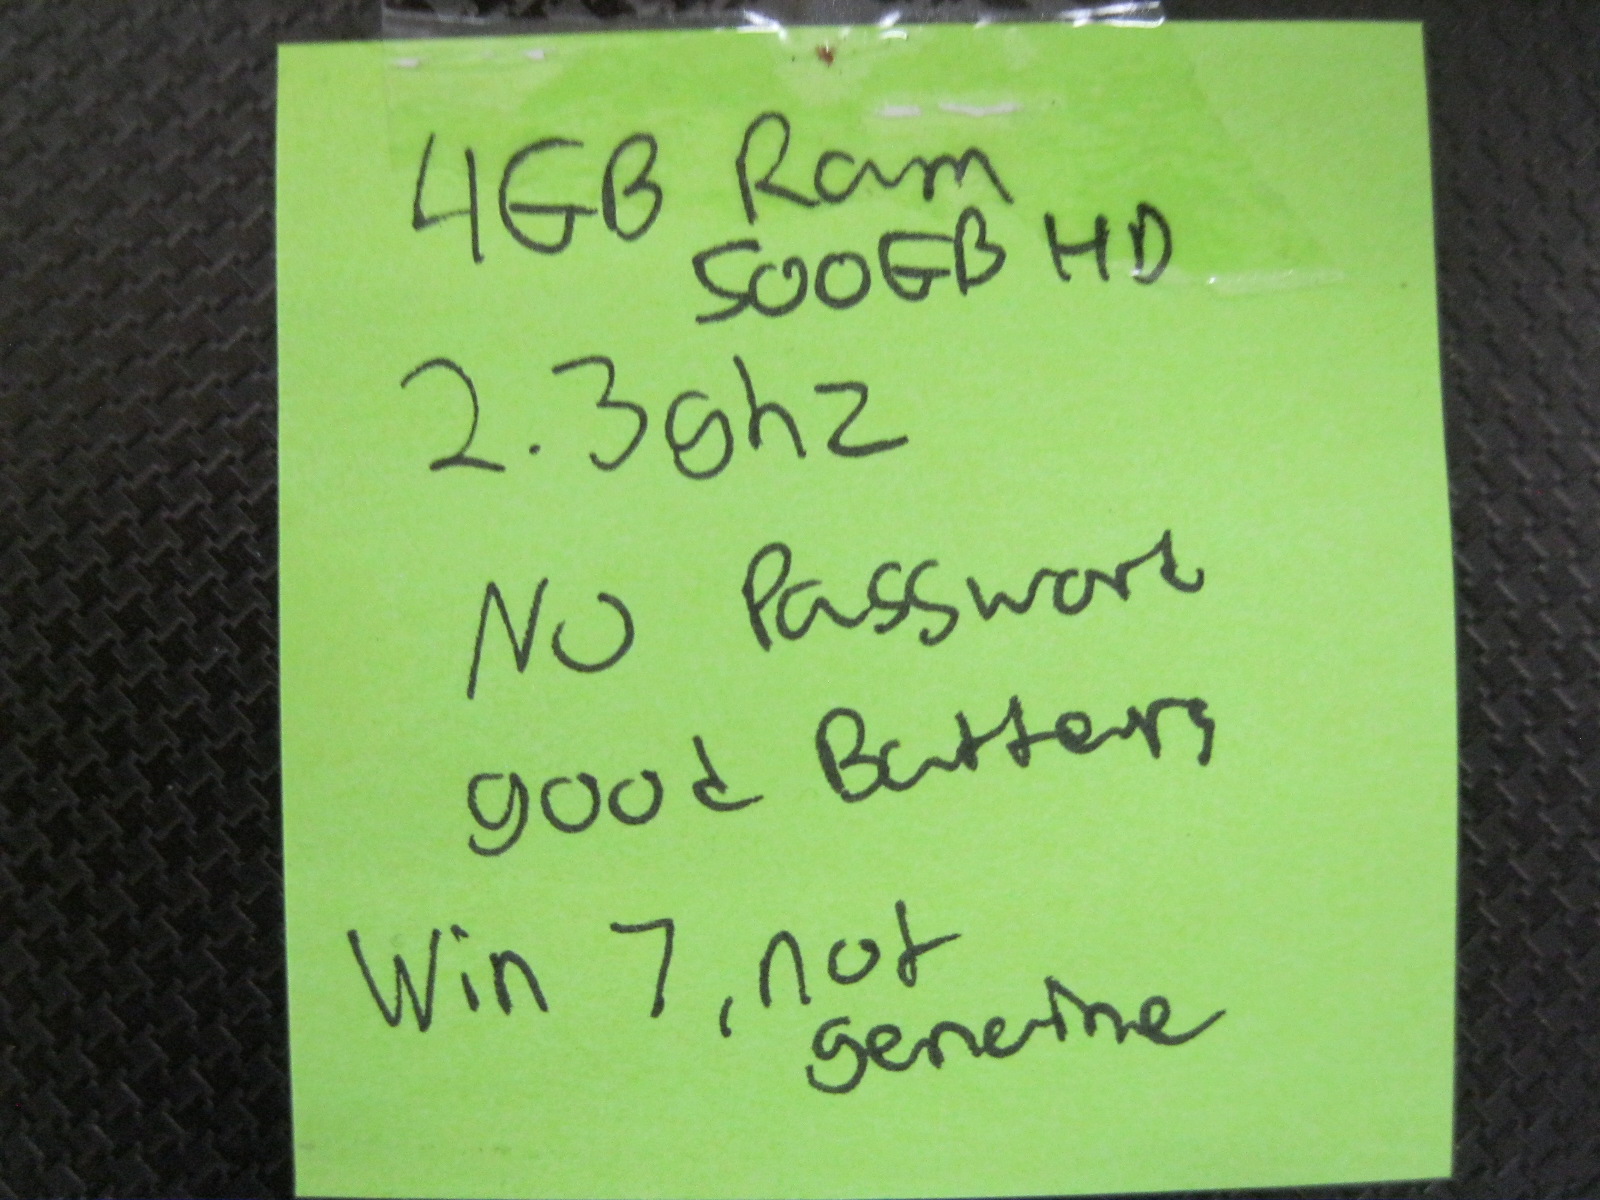 4GB Ram
500GB HD
2.3ghz
No Password
good Battery
Win 7, not
genuine